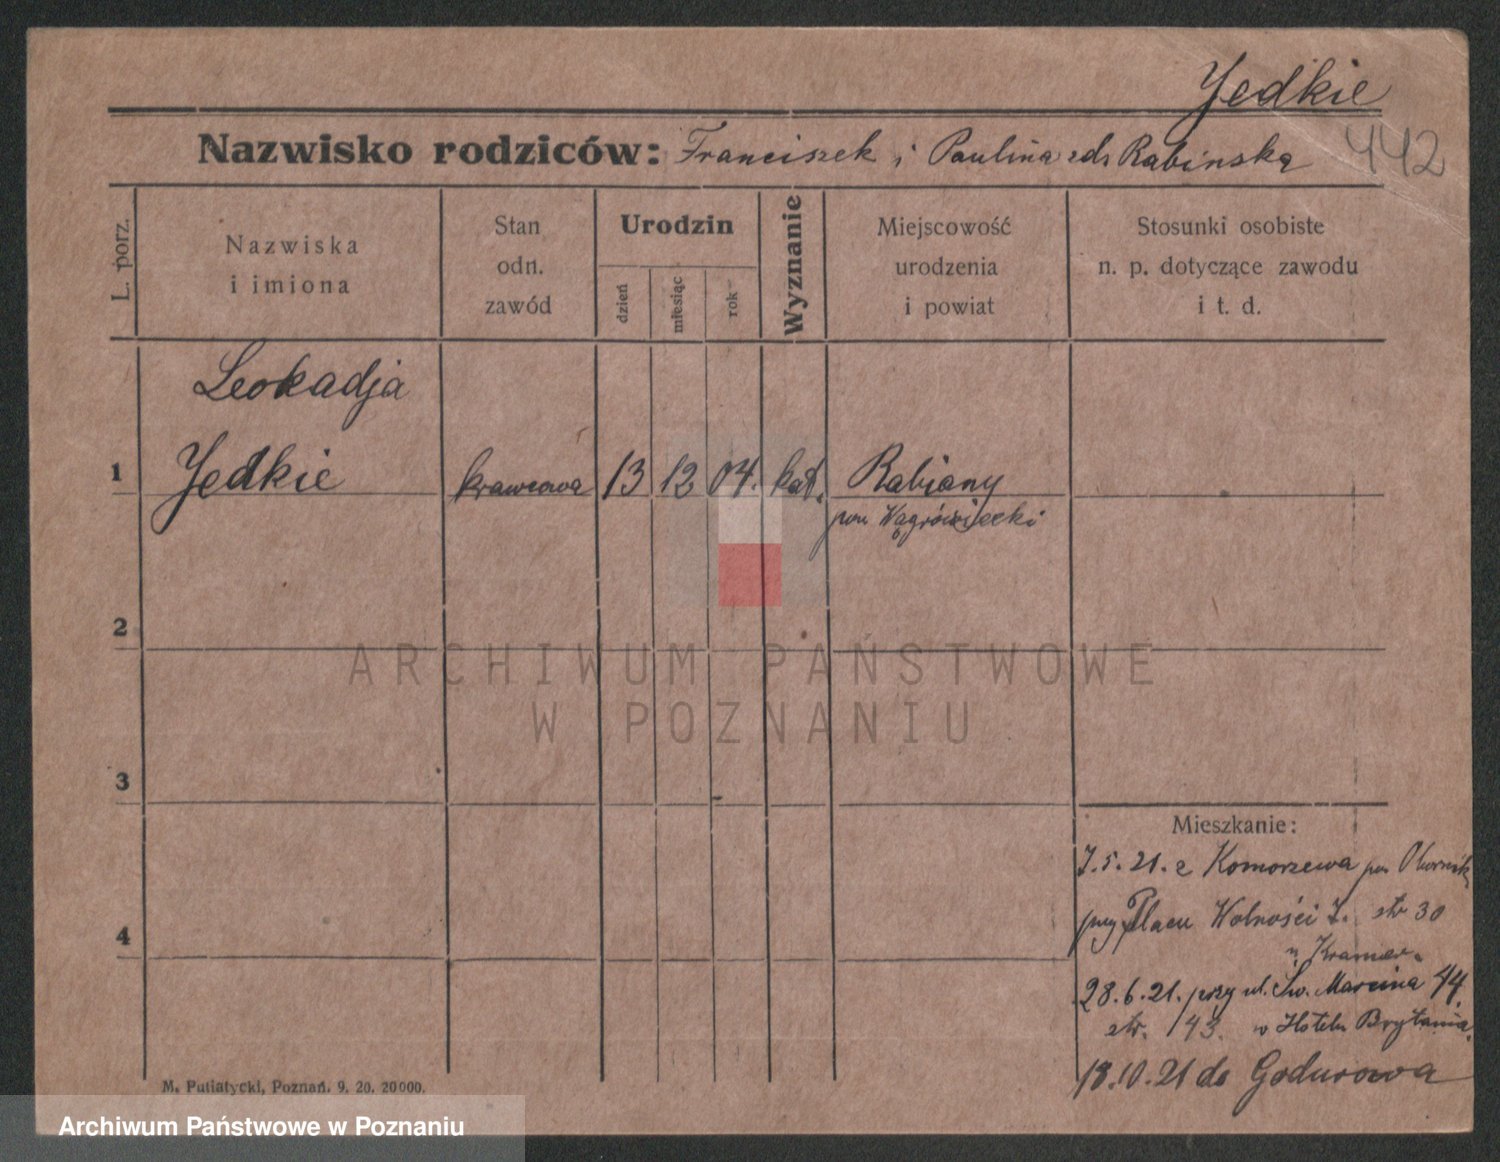 Yedkie
Nazwisko rodziców: Franciszek i Paulina zd. Rabinska
442
L. porz.
Nazwiska
i imiona
Stan
odn.
zawód
Urodzin
dzień
miesiąc
rok
Wyznanie
Miejscowość
urodzenia
i powiat
Stosunki osobiste
n. p. dotyczące zawodu
i t. d.
Leokadja
1 Yedkie krawcowa 13 12 04. kat. Rabiany
pow Wągrówiecki
2
3
Mieszkanie:
7.5.21. z Komorzewa pow Obornik
4
przy Placu Wolności 7. str 30
u Kramer
28.6.21. przy ul. Św. Marcina 44
str. 143. w Hotelu Brytania
18.10.21 do Godurowa
M. Putiatycki, Poznań. 9. 20. 20000.
ARCHIWUM PAŃSTWOWE
W POZNANIU
Archiwum Państwowe w Poznaniu